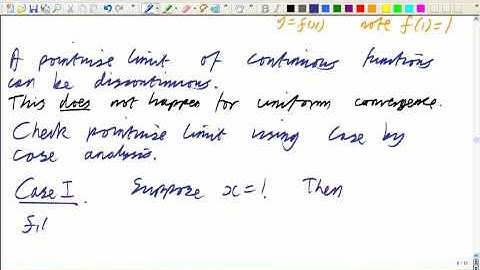 y=f(x) note f(1)=1
A pointwise limit of continuous functions
can be discontinuous.
This does not happen for uniform convergence.
Check pointwise limit using case by
case analysis.
Case I. Suppose x=1. Then